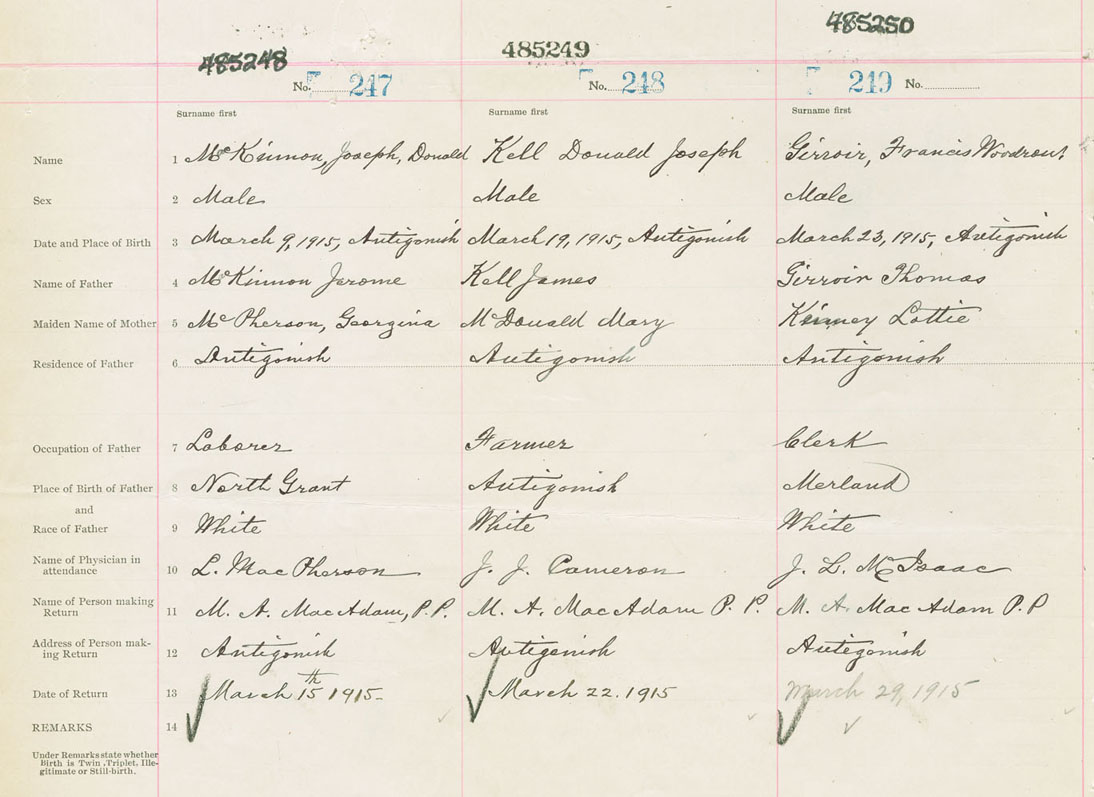 485248 485249 485250
No. 247 No. 248 249 No.
Surname first Surname first Surname first
Name 1 McKinnon, Joseph, Donald Kell Donald Joseph Girroir, Francis
Sex 2 Male Male Male
Date and Place of Birth 3 March 9, 1915, Antigonish March 19, 1915, Antigonish March 23, 1915, Antigonish
Name of Father 4 McKinnon Jerome Kell James Girroir Thomas
Maiden Name of Mother 5 McPherson, Georgina McDonald Mary Kinney Lottie
Residence of Father 6 Antigonish Antigonish Antigonish
Occupation of Father 7 Laborer Farmer Clerk
Place of Birth of Father 8 North Grant Antigonish Merland
and
Race of Father 9 White White White
Name of Physician in
attendance 10 L. MacPherson J. J. Cameron J. L. McIsaac
Name of Person making
Return 11 M. A. MacAdam, P.P. M. A. MacAdam P. P. M. A. MacAdam P.P
Address of Person mak-
ing Return 12 Antigonish Antigonish Antigonish
Date of Return 13 March 15th 1915 March 22. 1915 March 29, 1915
REMARKS 14
Under Remarks state whether
Birth is Twin, Triplet, Ille-
gitimate or Still-birth.